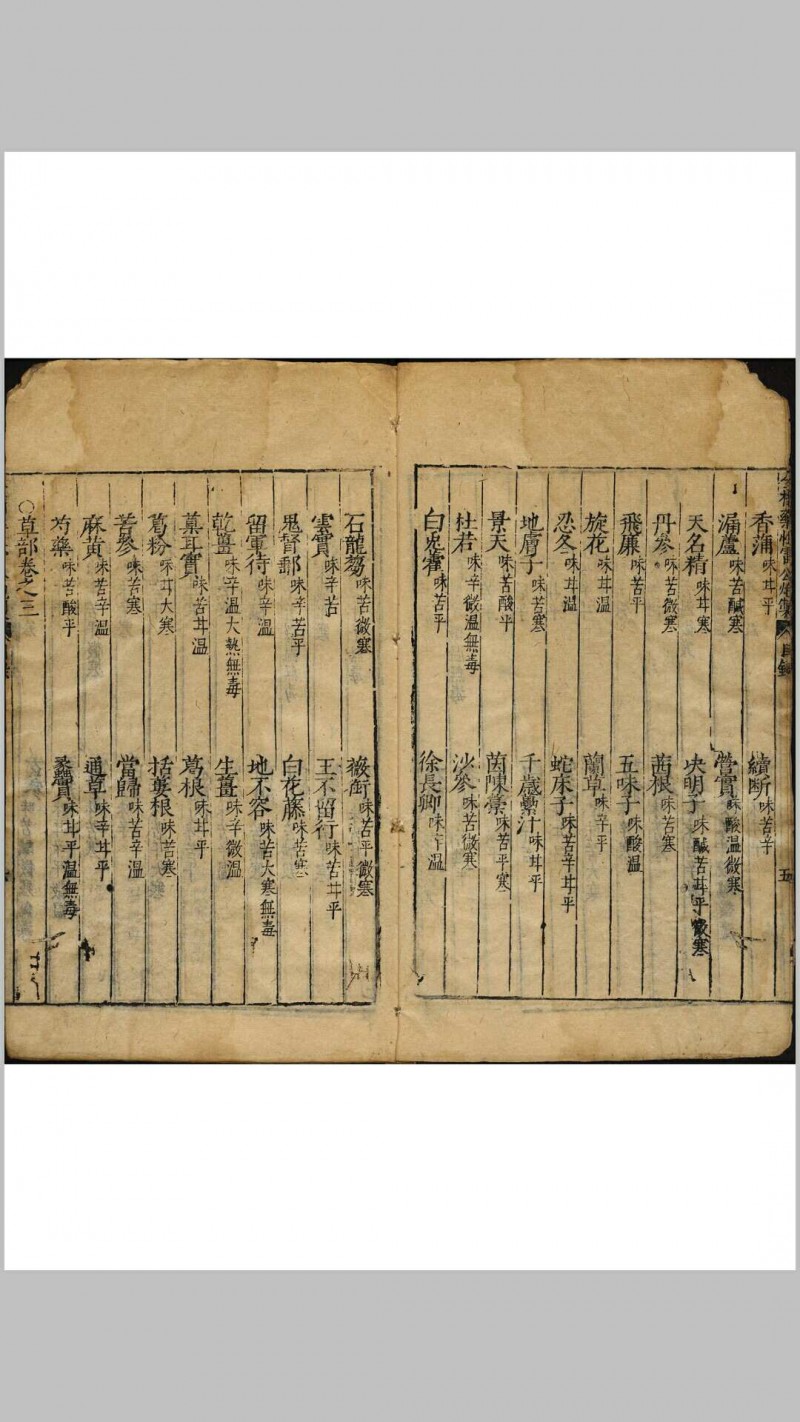 香蒲味甘平　續斷味苦辛
漏蘆味苦鹹寒　營實味酸溫微寒
天名精味甘寒　决明子味鹹苦甘平微寒
丹參味苦微寒　茜根味苦寒
飛廉味苦平　五味子味酸溫
旋花味甘溫　蘭草味辛平
忍冬味甘溫　蛇床子味苦辛甘平
地膚子味苦寒　千歲虆汁味甘平
景天味苦酸平　茵陳蒿味苦平寒
杜若味辛微溫無毒　沙參味苦微寒
白兎藿味苦平　徐長卿味辛溫
石龍芻味苦微寒　薇銜味苦平微寒
雲實味辛苦　王不留行味苦甘平
鬼督郵味辛苦平　白花藤味苦寒
留軍待味辛溫　地不容味苦大寒無毒
乾薑味辛溫大熱無毒　生薑味辛微溫
葈耳實味苦甘溫　葛根味甘平
葛粉味甘大寒　括蔞根味苦寒
苦參味苦寒　當歸味苦辛溫
麻黄味苦辛溫　通草味辛甘平
芍藥味苦酸平　蠡實味甘平溫無毒
○草部卷之三
目錄
五